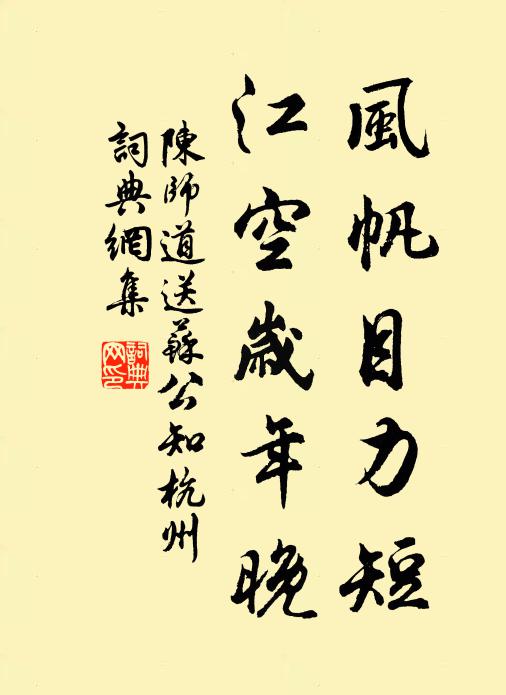 風帆目力短
江空歲年晚
陳師道送蘇公知杭州
詞典網集
詞典網印